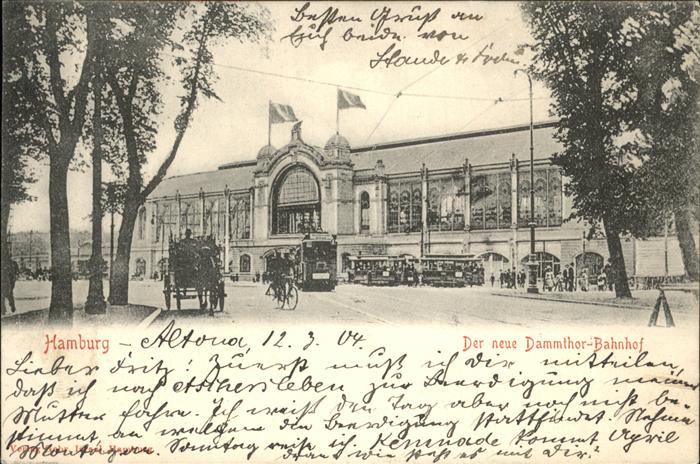 Besten Gruß an
Euch beide von
Hamburg - Altona, 12. 3. 04.
Der neue Dammthor-Bahnhof
Lieber Fritz! Zuerst muß ich dir mitteilen,
daß ich nach Aschersleben zur Beerdigung meiner
Mutter fahre. Ich weiß den Tag aber noch nicht be-
stimmt an welchem die Beerdigung stattfindet. Nehme
Sonntag reise ich. Kommt April
dran wie steht es mit Dir?